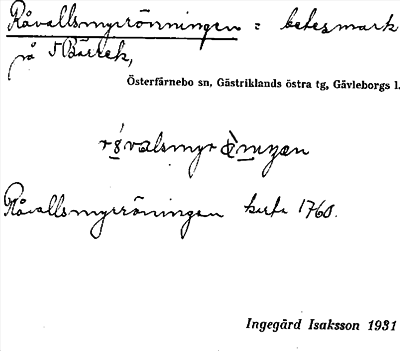 Råvallsmyrrönningen = betesmark
på N Bärrek,
Österfärnebo sn, Gästriklands östra tg, Gävleborgs l.
Råvallsmyrröningen karta 1760.
Ingegärd Isaksson 1931